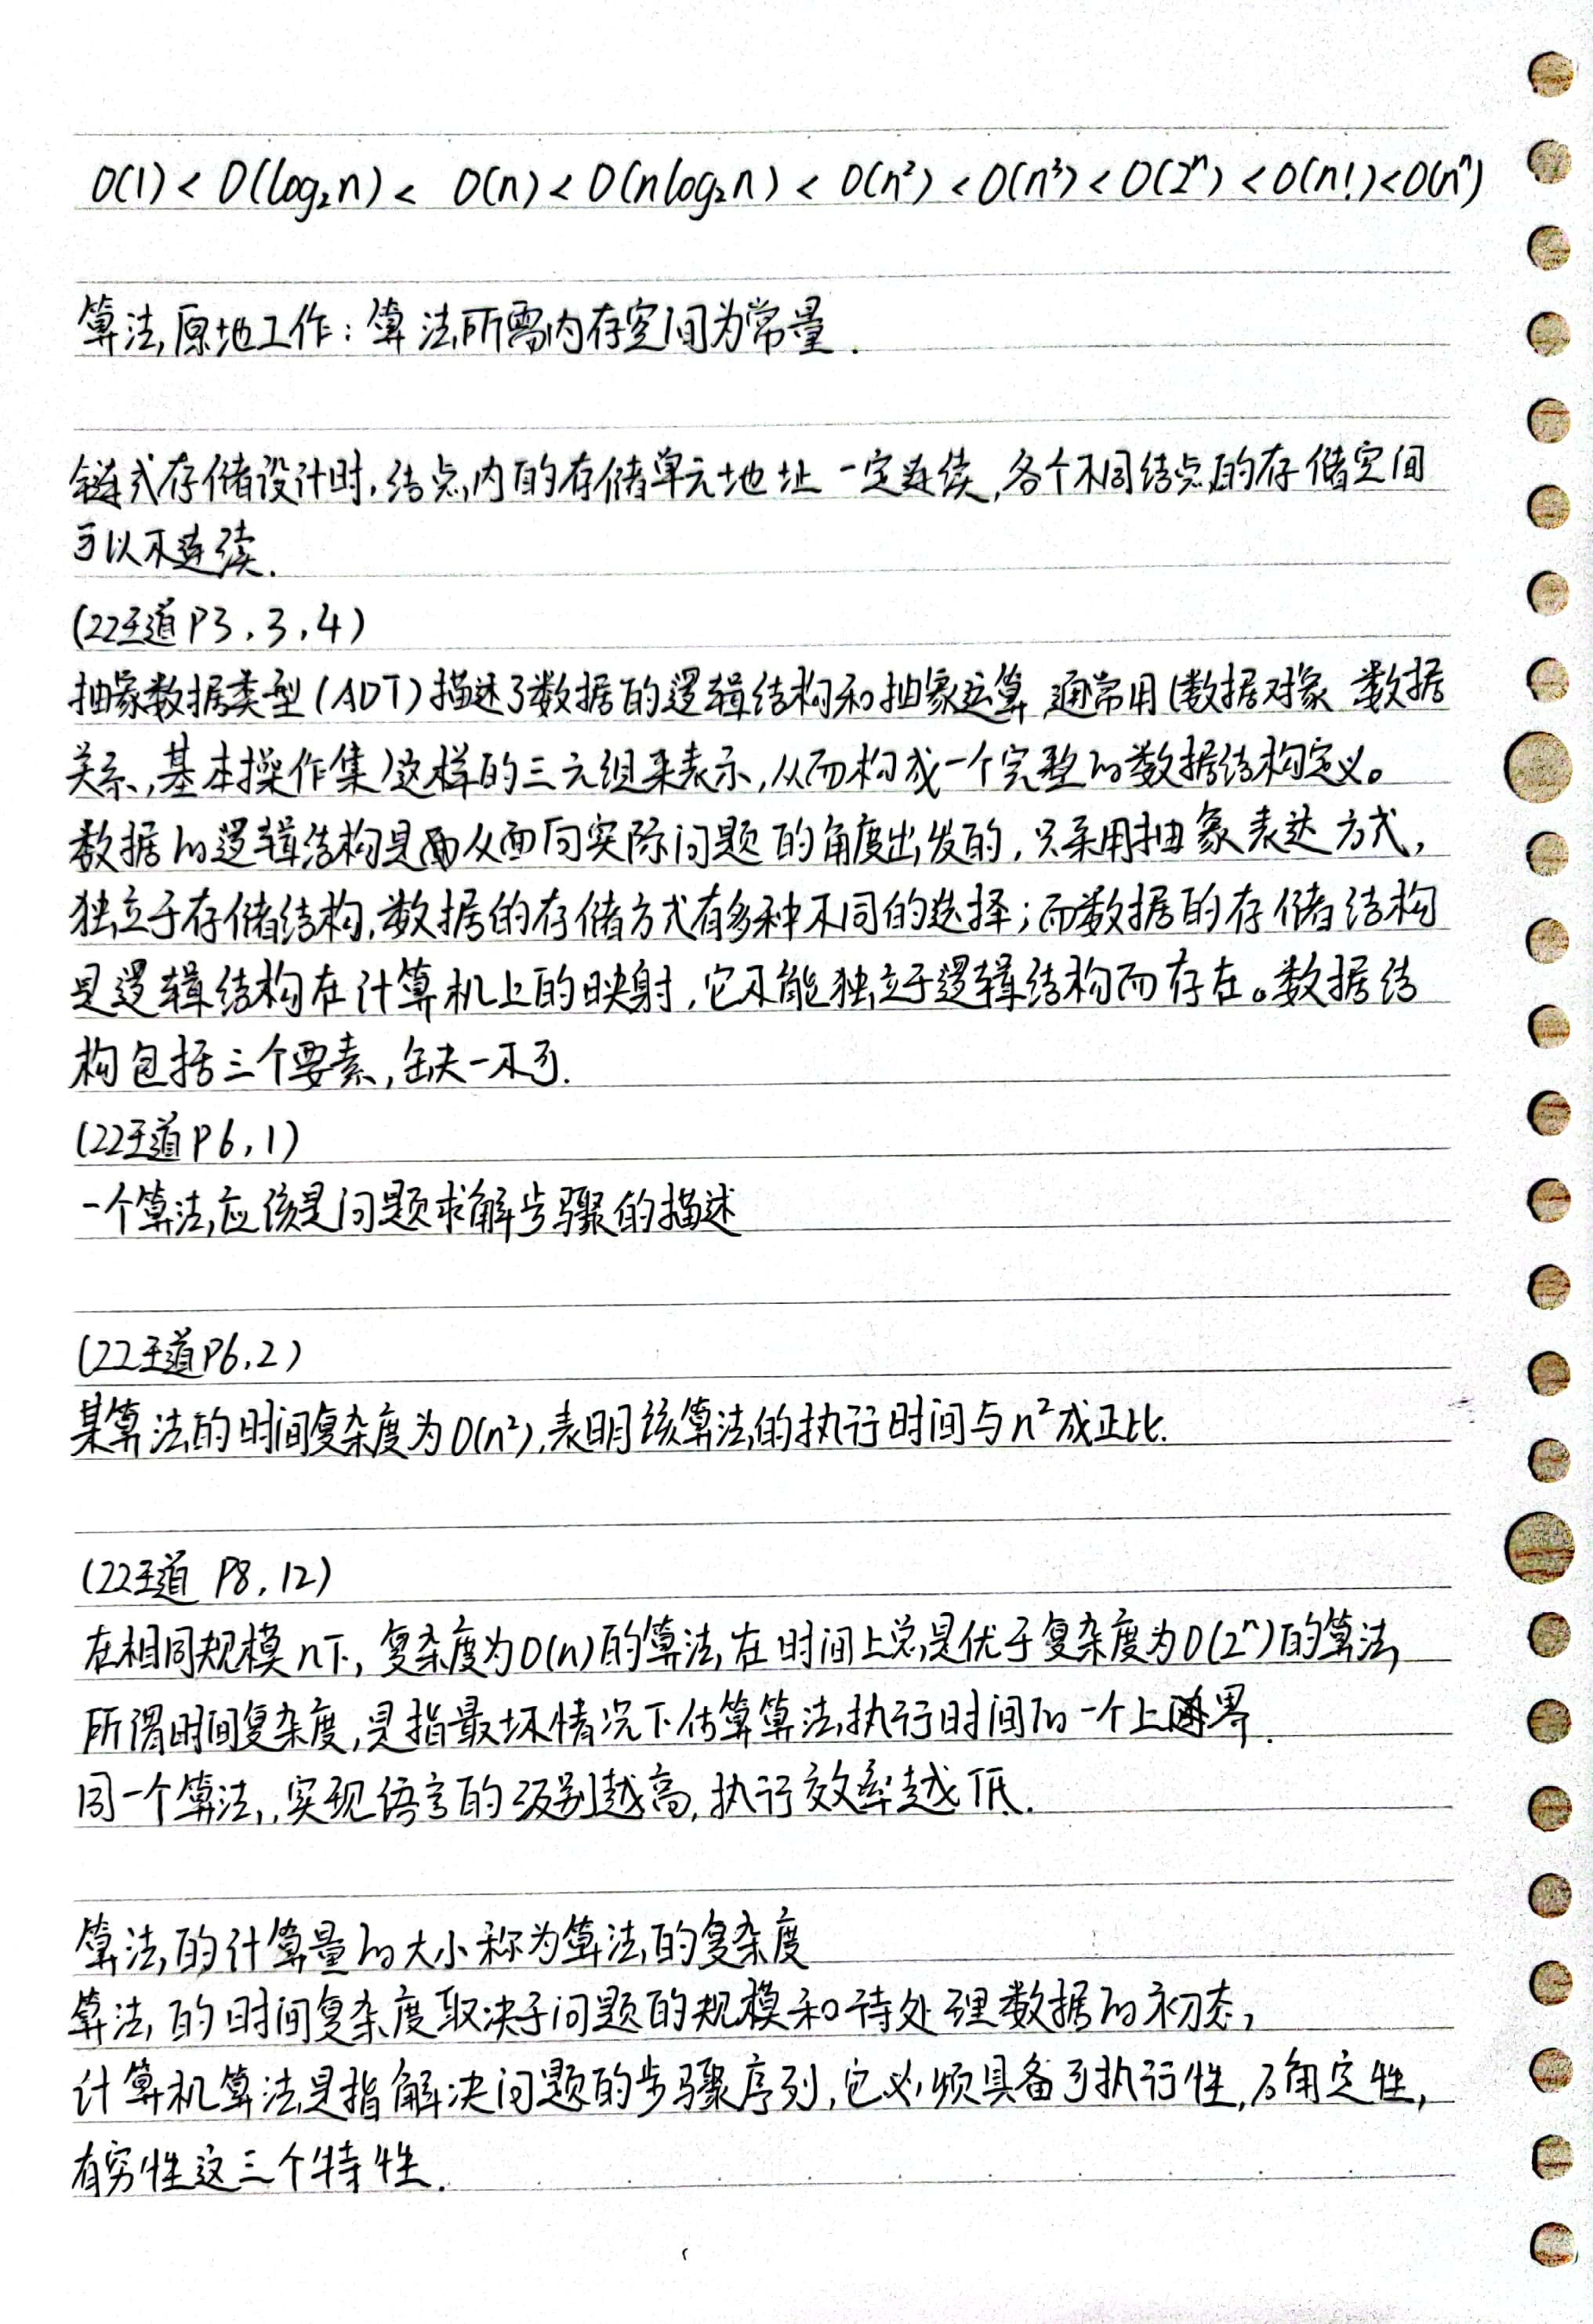 O(1) < O(log₂n) < O(n) < O(nlog₂n) < O(n²) < O(n³) < O(2ⁿ) < O(n!) < O(nⁿ)
算法原地工作: 算法所需内存空间为常量.
链式存储设计时,结点内的存储单元地址一定连续,各个不同结点的存储空间
可以不连续.
(22王道P3,3,4)
抽象数据类型(ADT)描述了数据的逻辑结构和抽象运算,通常用(数据对象,数据
关系,基本操作集)这样的三元组来表示,从而构成一个完整的数据结构定义。
数据的逻辑结构是从面向实际问题的角度出发的,只采用抽象表达方式,
独立于存储结构,数据的存储方式有多种不同的选择;而数据的存储结构
是逻辑结构在计算机上的映射,它不能独立于逻辑结构而存在。数据结
构包括三个要素,缺一不可.
(22王道P6,1)
一个算法应该是问题求解步骤的描述
(22王道P6,2)
某算法的时间复杂度为O(n²),表明该算法的执行时间与n²成正比.
(22王道 P8,12)
在相同规模n下,复杂度为O(n)的算法在时间上总是优于复杂度为O(2ⁿ)的算法,
所谓时间复杂度,是指最坏情况下估算算法执行时间的一个上界.
同一个算法,实现语言的级别越高,执行效率越低.
算法的计算量的大小称为算法的复杂度
算法的时间复杂度取决于问题的规模和待处理数据的初态,
计算机算法是指解决问题的步骤序列,它必须具备可执行性,确定性,
有穷性这三个特性.